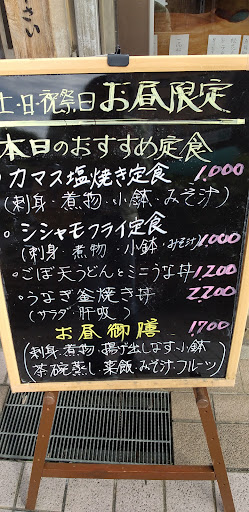 さい
土・日・祝祭日お昼限定
本日のおすすめ定食
・カマス塩焼き定食 1,000
(刺身・煮物・小鉢・みそ汁)
・シシャモフライ定食 1,000
(刺身 煮物 小鉢・みそ汁)
・ごぼ天うどんとミニうな丼 1,200
・うなぎ釜焼き丼 2,200
(サラダ・肝吸)
お昼御膳 1,700
(刺身・煮物・揚げ出しなす・小鉢
茶碗蒸し・薬飯・みそ汁・フルーツ)